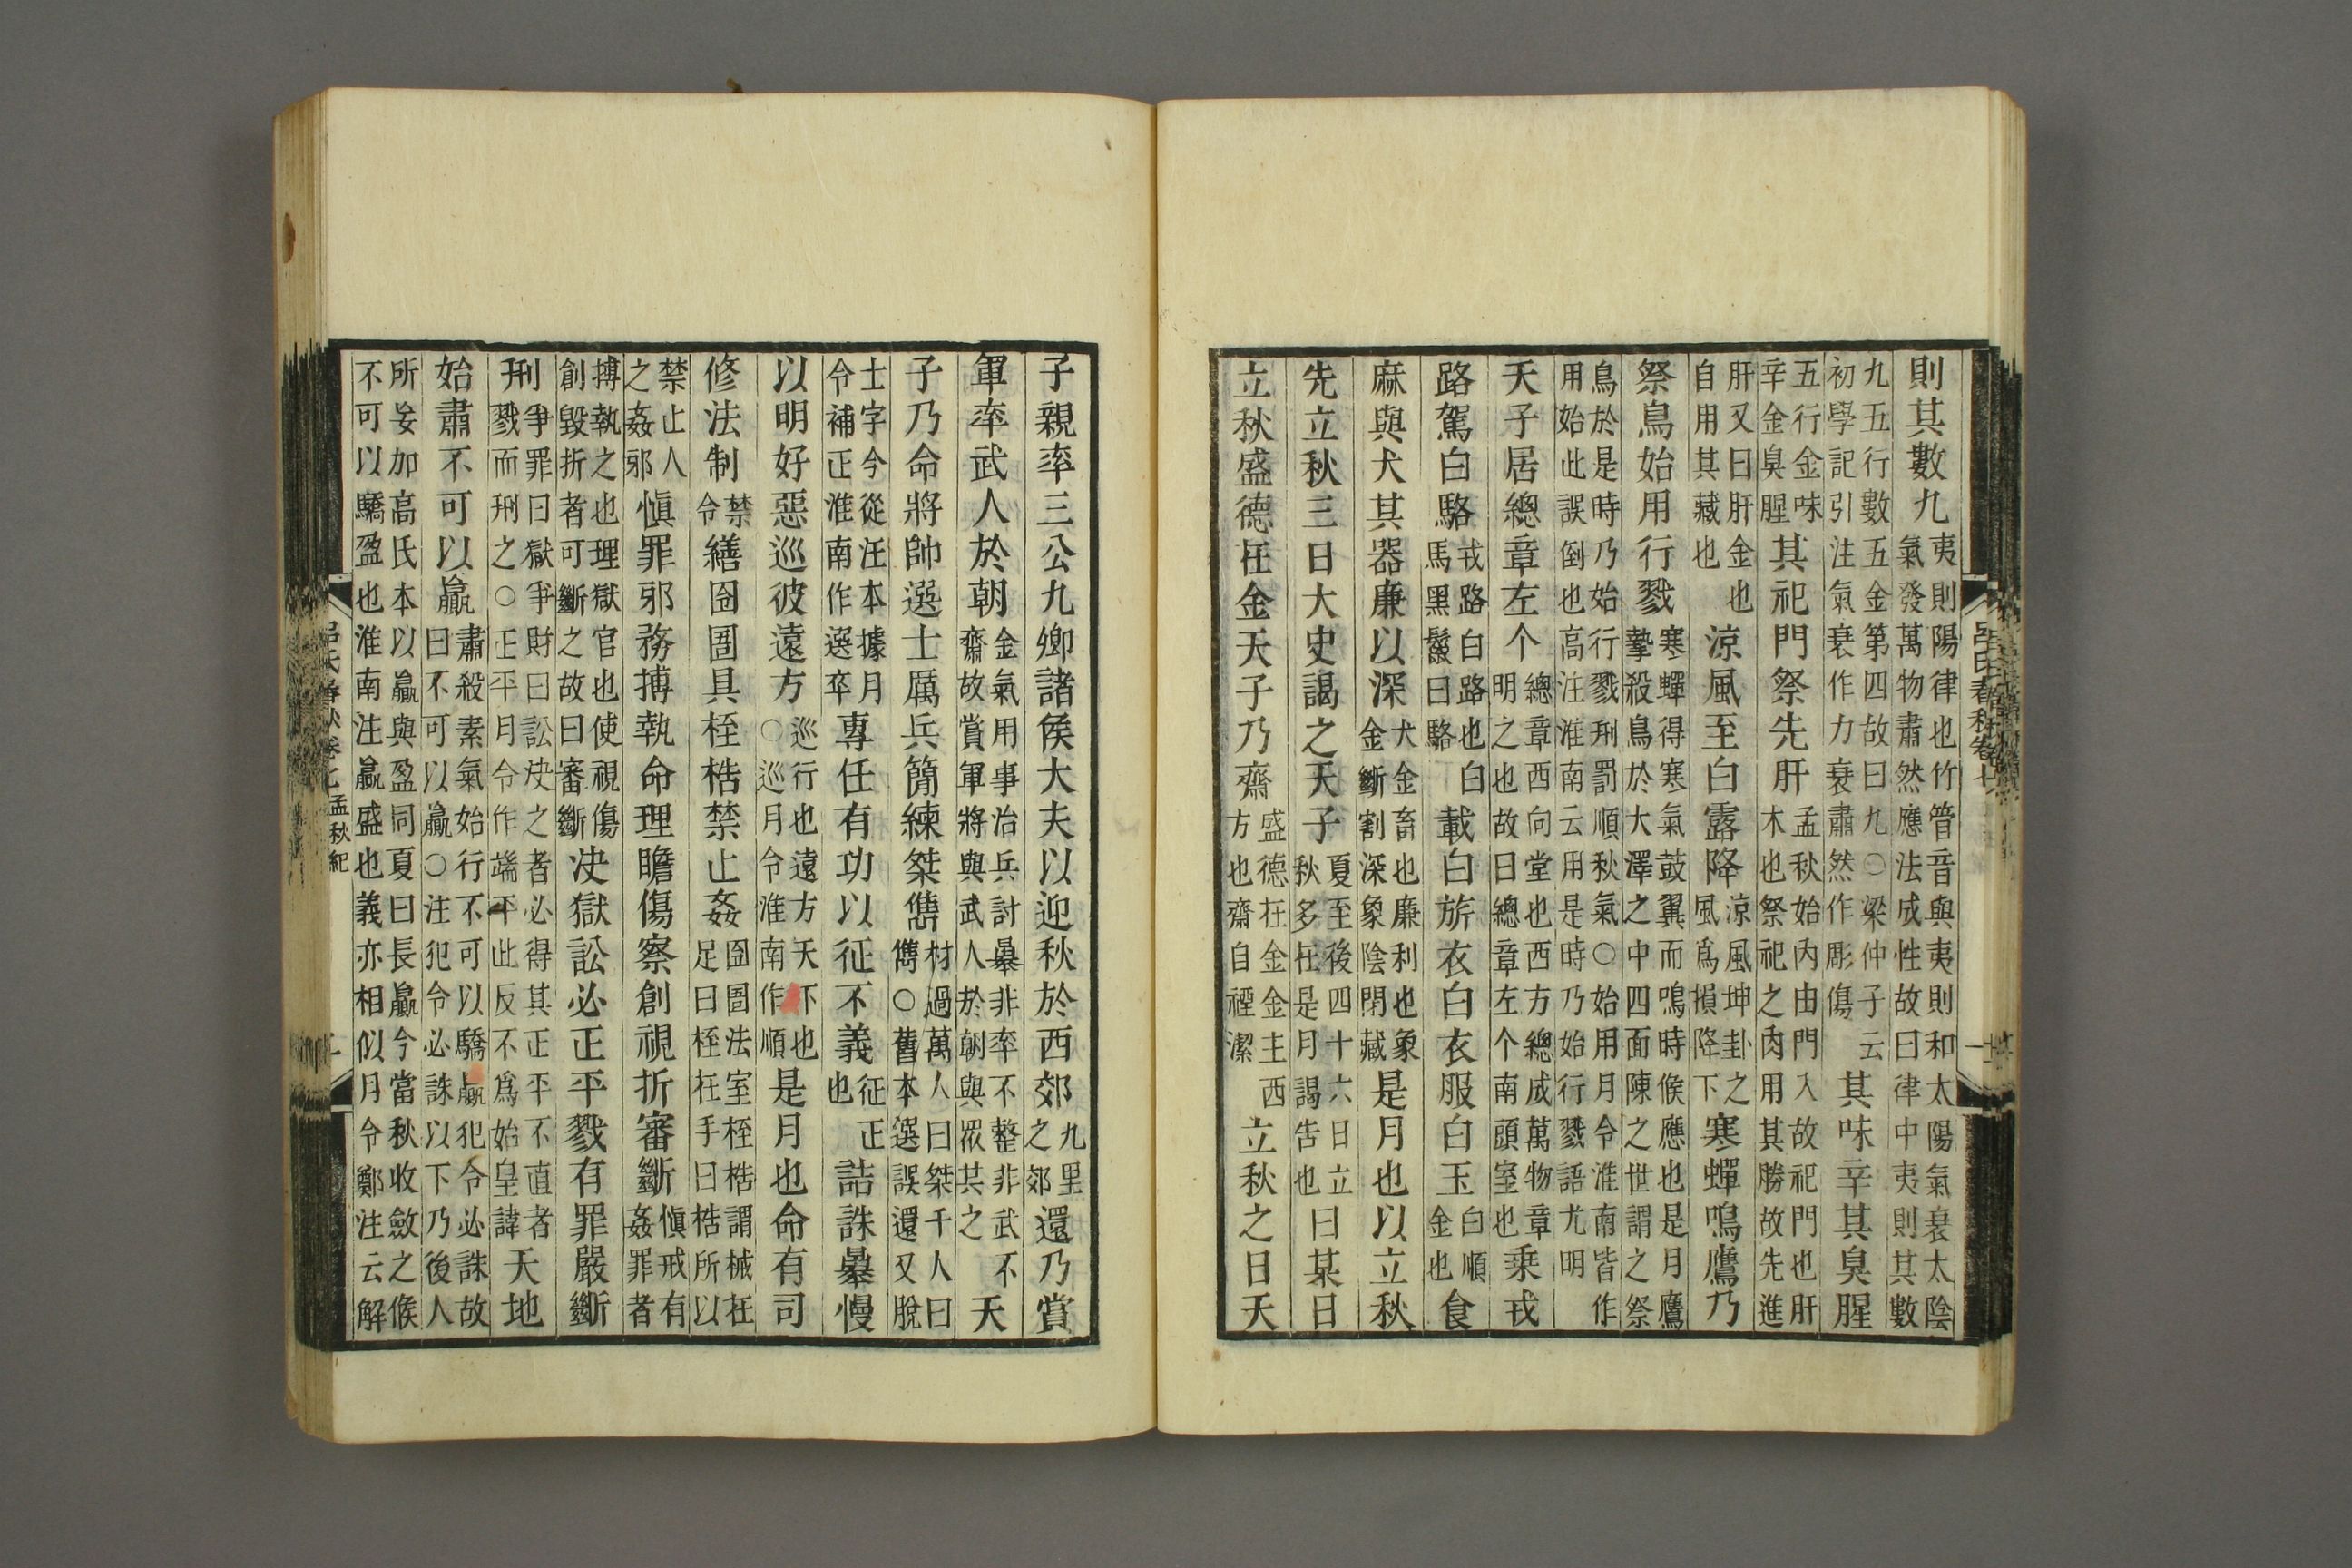 則其數九夷則陽律也竹管音與夷則和太陽氣衰太陰氣發萬物肅然應法成性故曰律中夷則其數
九五行數五金第四故曰九〇梁仲子云初學記引注氣衰作力衰肅然作彫傷其味辛其臭腥
五行金味辛金臭腥其祀門祭先肝孟秋始內由門入故祀門也肝木也祭祀之肉用其勝故先進
肝又曰肝金也自用其藏也涼風至白露降涼風坤卦之風爲損降下寒蟬鳴鷹乃
祭鳥始用行戮寒蟬得寒氣鼓翼而鳴時候應也是月鷹摯殺鳥於大澤之中四面陳之世謂之祭
鳥於是時乃始行戮刑罰順秋氣〇始用月令淮南皆作用始此誤倒也高注淮南云用是時乃始行戮語尤明
天子居總章左个總章西向堂也西方總成萬物章明之也故曰總章左个南頭室也乘戎
路駕白駱戎路白路也白馬黑鬣曰駱載白旂衣白衣服白玉白順金也食
麻與犬其器廉以深犬金畜也廉利也象金斷割深象陰閉藏是月也以立秋
先立秋三日大史謁之天子夏至後四十六日立秋多在是月謁告也曰某日
立秋盛德在金天子乃齋盛德在金金主西方也齋自禋潔立秋之日天
呂氏春秋卷七
子親率三公九卿諸侯大夫以迎秋於西郊九里之郊還乃賞
軍率武人於朝金氣用事治兵討暴非率不整非武不齋故賞軍將與武人於朝與眾其之天
子乃命將帥選士厲兵簡練桀儁材過萬人曰桀千人曰儁〇舊本選誤還又脫
士字今從汪本據月令補正淮南作選卒專任有功以征不義征正也詰誅暴慢
以明好惡巡彼遠方巡行也遠方天下也〇巡月令淮南作順是月也命有司
修法制禁令繕囹圄具桎梏禁止姦囹圄法室桎梏謂械在足曰桎在手曰梏所以
禁止人之姦邪愼罪邪務搏執命理瞻傷察創視折審斷愼戒有姦罪者
搏執之也理獄官也使視傷創毀折者可斷之故曰審斷决獄訟必正平戮有罪嚴斷
刑爭罪曰獄爭財曰訟决之者必得其正平不直者戮而刑之〇正平月令作端平此反不爲始皇諱天地
始肅不可以贏肅殺素氣始行不可以驕贏犯令必誅故曰不可以贏〇注犯令必誅以下乃後人
所妄加高氏本以贏與盈同夏曰長贏今當秋收斂之候不可以驕盈也淮南注贏盛也義亦相似月令鄭注云解
呂氏春秋卷七 孟秋紀